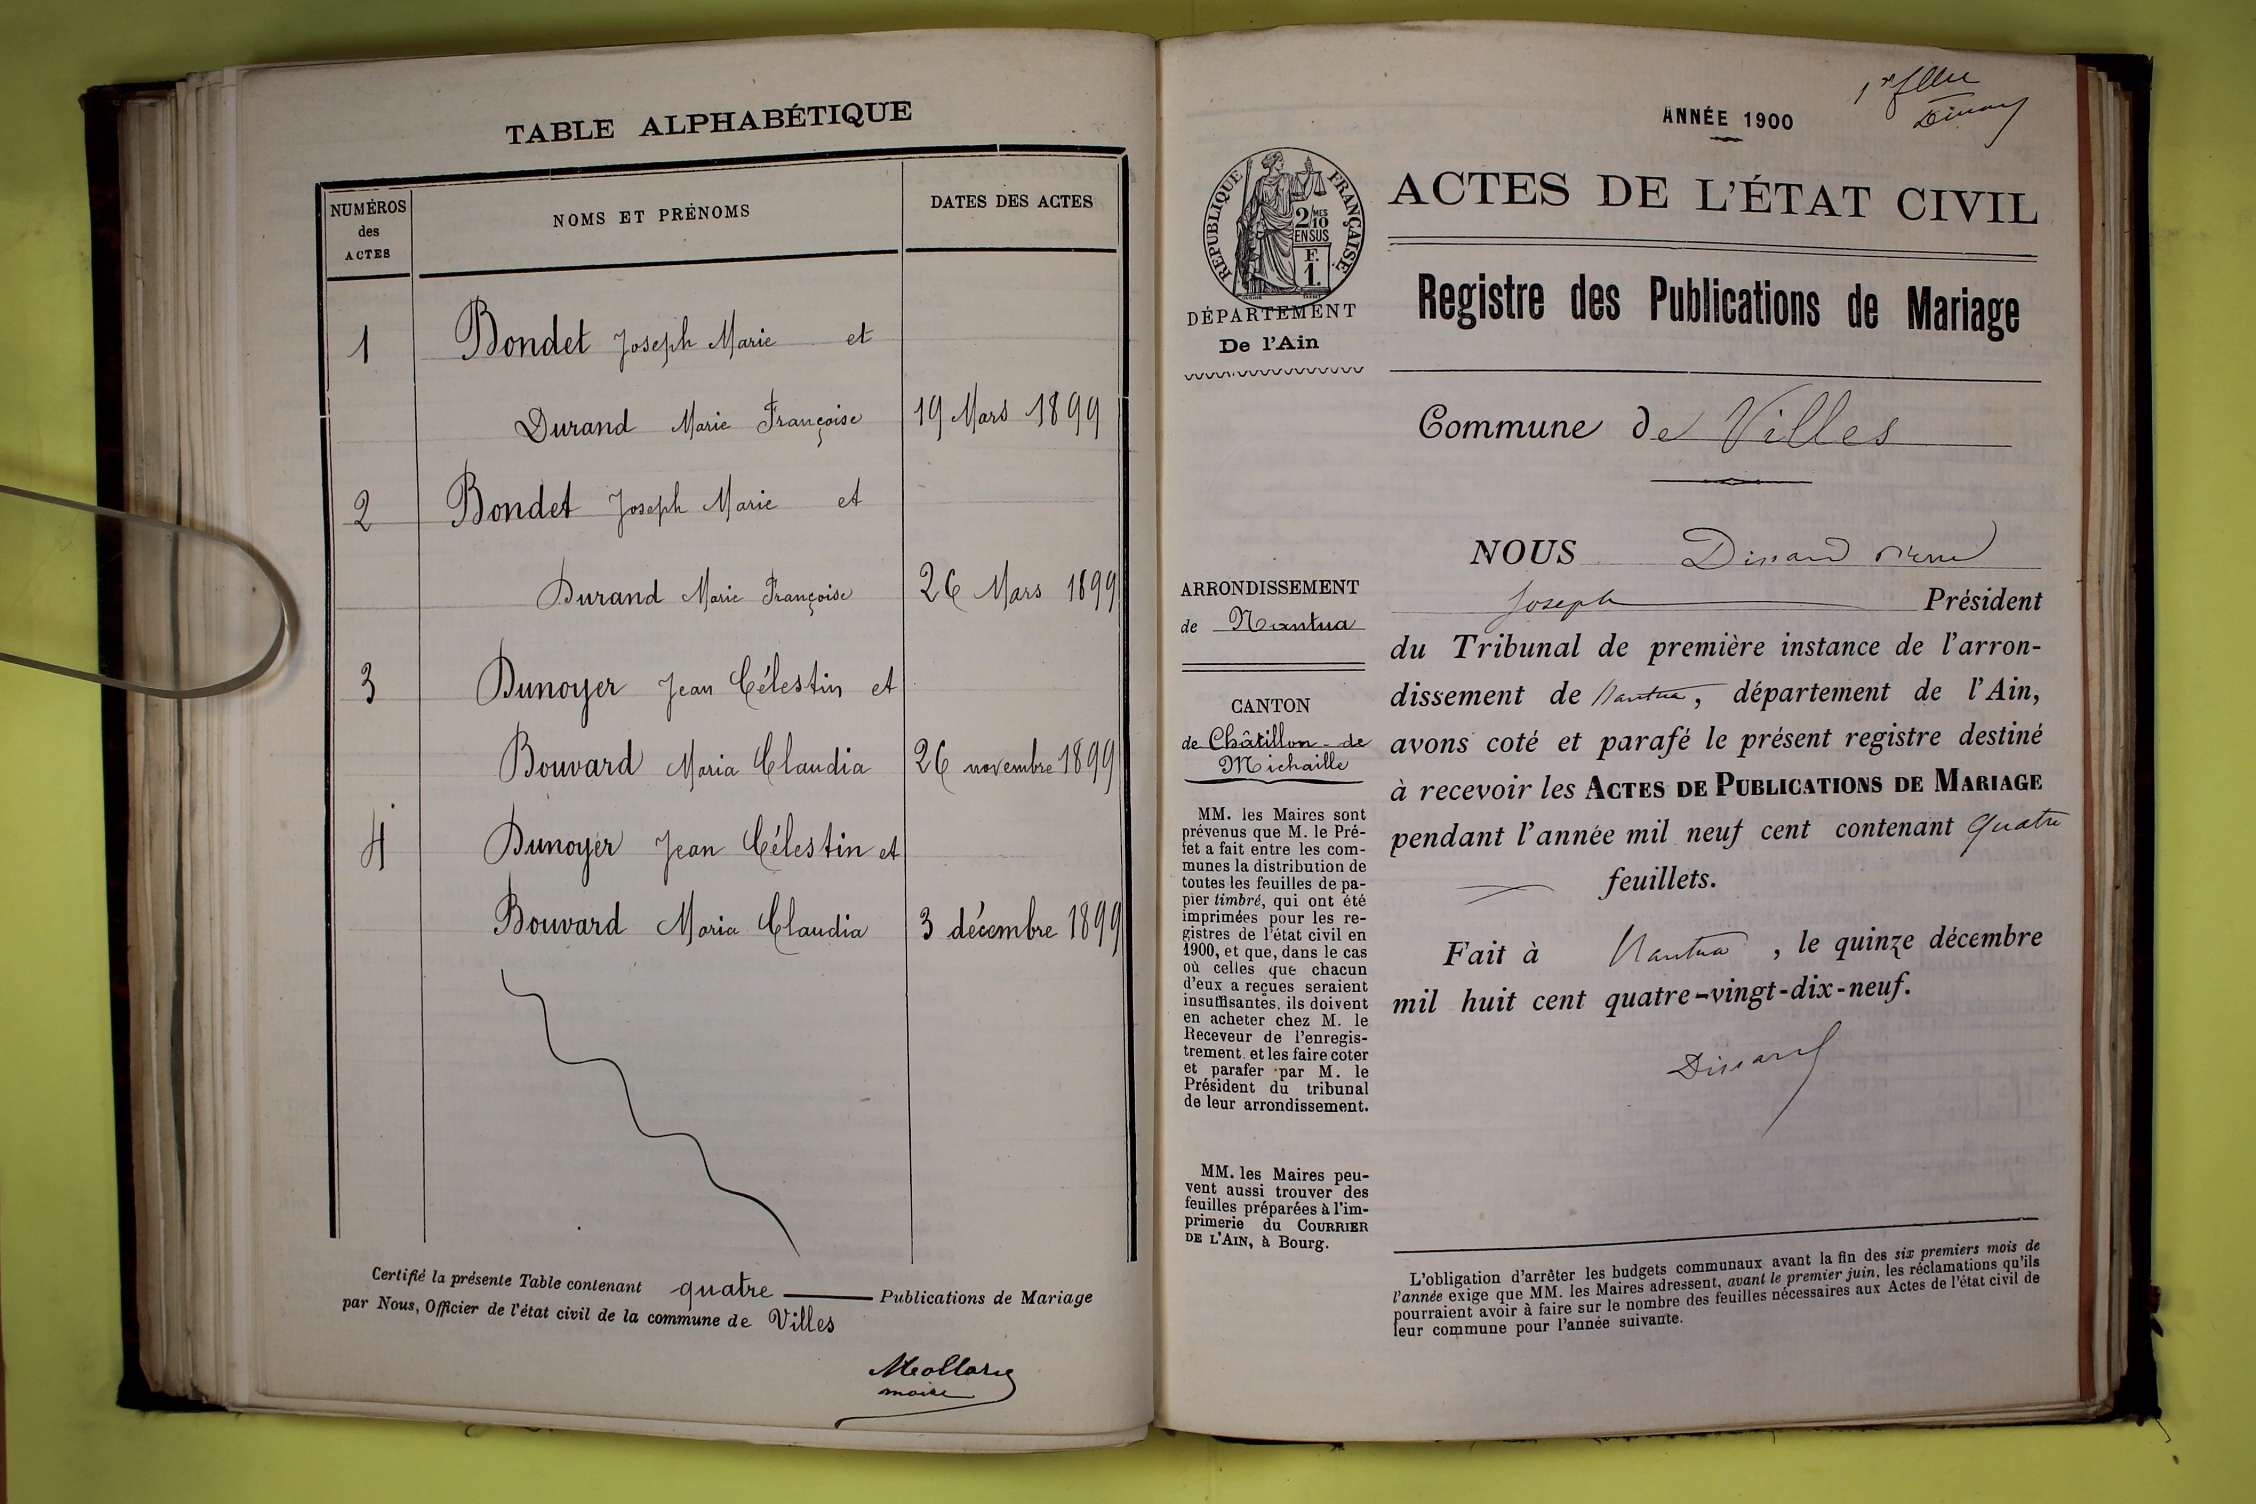 TABLE ALPHABÉTIQUE
NUMÉROS
des
ACTES
NOMS ET PRÉNOMS
DATES DES ACTES
1 Bondet Joseph Marie et
Durand Marie Françoise 19 Mars 1899
2 Bondet Joseph Marie et
Durand Marie Françoise 26 Mars 1899
3 Dunoyer Jean Célestin et
Bouvard Maria Claudia 26 novembre 1899
4 Dunoyer Jean Célestin et
Bouvard Maria Claudia 3 décembre 1899
Certifié la présente Table contenant quatre Publications de Mariage
par Nous, Officier de l'état civil de la commune de Villes
ANNÉE 1900
RÉPUBLIQUE FRANÇAISE
2/MES
10
EN SUS
F.
1.
DÉPARTEMENT
De l'Ain
ARRONDISSEMENT
de Nantua
CANTON
de Châtillon-de
Michaille
MM. les Maires sont
prévenus que M. le Pré-
fet a fait entre les com-
munes la distribution de
toutes les feuilles de pa-
pier timbré, qui ont été
imprimées pour les re-
gistres de l'état civil en
1900, et que, dans le cas
où celles que chacun
d'eux a reçues seraient
insuffisantes, ils doivent
en acheter chez M. le
Receveur de l'enregis-
trement, et les faire coter
et parafer par M. le
Président du tribunal
de leur arrondissement.
MM. les Maires peu-
vent aussi trouver des
feuilles préparées à l'im-
primerie du COURRIER
DE L'AIN, à Bourg.
ACTES DE L'ÉTAT CIVIL
Registre des Publications de Mariage
Commune de Villes
NOUS Dissard Pierre
Joseph Président
du Tribunal de première instance de l'arron-
dissement de Nantua, département de l'Ain,
avons coté et parafé le présent registre destiné
à recevoir les ACTES DE PUBLICATIONS DE MARIAGE
pendant l'année mil neuf cent contenant quatre
feuillets.
Fait à Nantua, le quinze décembre
mil huit cent quatre-vingt-dix-neuf.
Dissard
L'obligation d'arrêter les budgets communaux avant la fin des six premiers mois de
l'année exige que MM. les Maires adressent, avant le premier juin, les réclamations qu'ils
pourraient avoir à faire sur le nombre des feuilles nécessaires aux Actes de l'état civil de
leur commune pour l'année suivante.